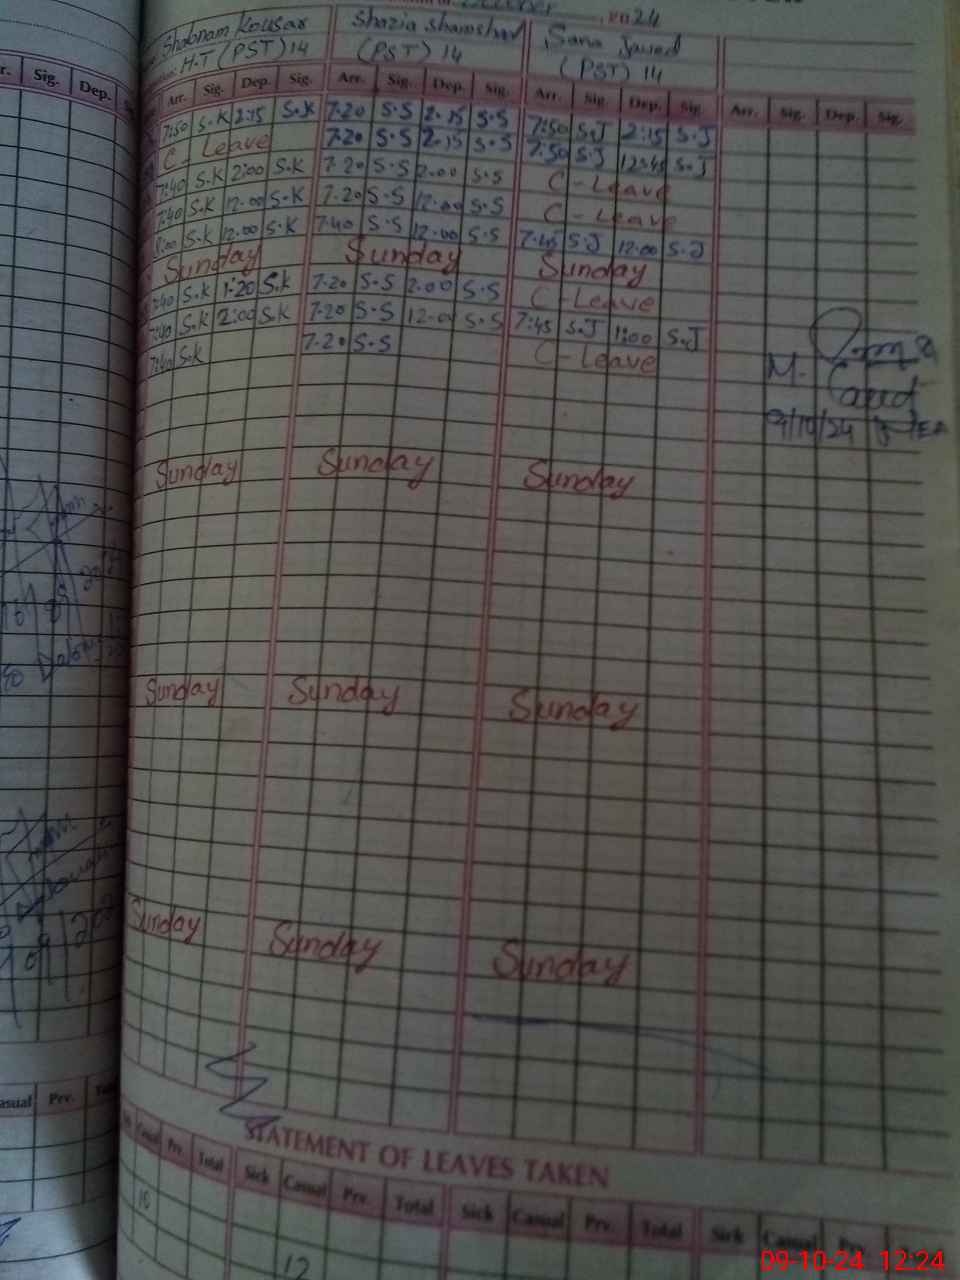 2024
Shabnam Kousar Shazia Shamshad Sana Javed
H.T (PST) 14 (PST) 14 (PST) 14
Sig. Dep. Arr. Sig. Dep. Sig. Arr. Sig. Dep. Sig. Arr. Sig. Dep. Sig. Arr. Sig. Dep. Sig.
7:50 S.K 2:15 S.K 7.20 S.S 2.15 S.S 7:50 S.J 2:15 S.J
C - Leave 7.20 S.S 2.15 S.S 7:50 S.J 12:45 S.J
7:40 S.K 2:00 S.K 7.20 S.S 2.00 S.S C - Leave
7:40 S.K 12.00 S.K 7.20 S.S 12.00 S.S C - Leave
8:00 S.K 12.00 S.K 7.40 S.S 12.00 S.S 7:45 S.J 12.00 S.J
Sunday Sunday Sunday
7:40 S.K 1:20 S.K 7.20 S.S 2.00 S.S C - Leave
7:40 S.K 2:00 S.K 7.20 S.S 12.00 S.S 7:45 S.J 1:00 S.J
7:40 S.K 7.20 S.S C - Leave
M.
9/10/24
Sunday Sunday Sunday
Sunday Sunday Sunday
Sunday Sunday Sunday
STATEMENT OF LEAVES TAKEN
Casual Prv. Total Sick Casual Prv. Total Sick Casual Prv. Total Sick Casual Prv.
10 12
09-10-24 12:24